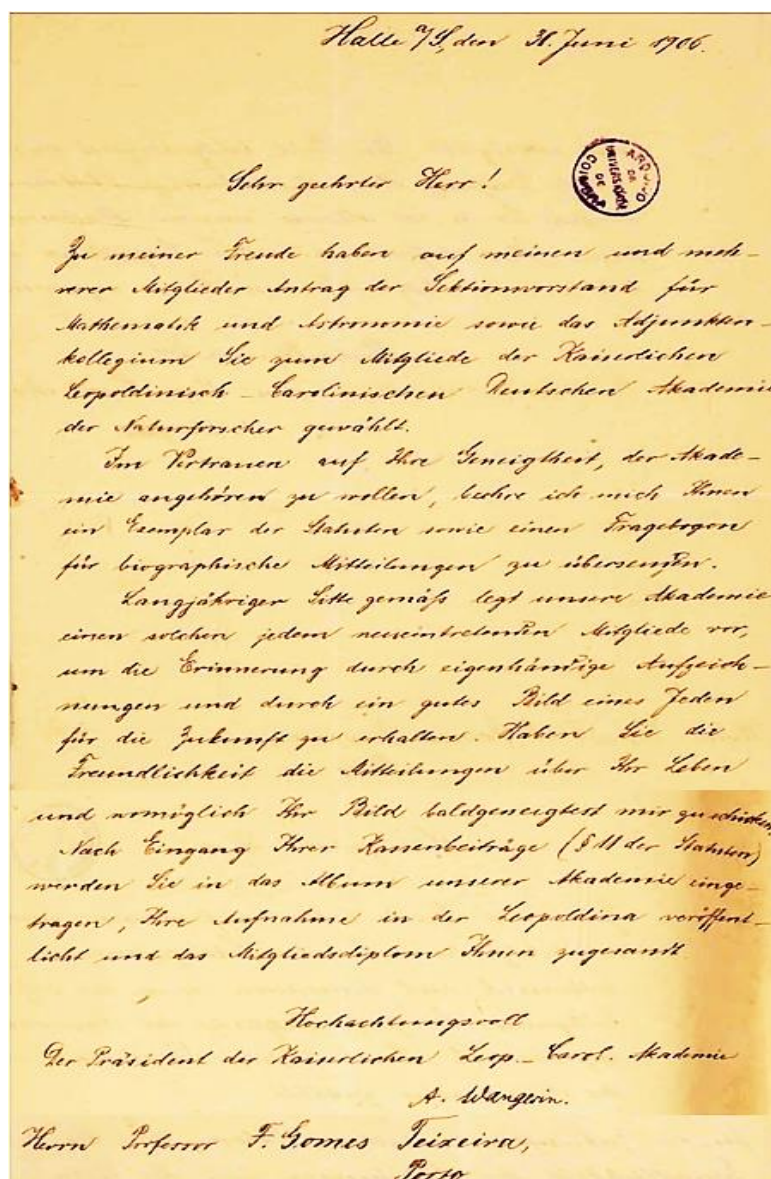 Halle a/S, den 30. Juni 1906.
ARQUIVO
DA
UNIVERSIDADE
DE
COIMBRA
Sehr geehrter Herr!
Zu meiner Freude haben auf meinen und meh-
rerer Mitglieder Antrag der Sektionvorstand für
Mathematik und Astronomie sowie das Adjunkten-
kollegium Sie zum Mitgliede der Kaiserlichen
Leopoldinisch-Carolinischen Deutschen Akademie
der Naturforscher gewählt.
Im Vertrauen auf Ihre Geneigtheit, der Akade-
mie angehören zu wollen, beehre ich mich Ihnen
ein Exemplar der Statuten sowie einen Fragebogen
für biographische Mitteilungen zu übersenden.
Langjähriger Sitte gemäß legt unsere Akademie
einen solchen jedem neueintretenden Mitgliede vor,
um die Erinnerung durch eigenhändige Aufzeich-
nungen und durch ein gutes Bild eines Jeden
für die Zukunft zu erhalten. Haben Sie die
Freundlichkeit die Mitteilungen über Ihr Leben
und womöglich Ihr Bild baldgeneigtest mir zu schicken.
Nach Eingang Ihrer Kassenbeiträge (§ 11 der Statuten)
werden Sie in das Album unserer Akademie einge-
tragen, Ihre Aufnahme in der Leopoldina veröffent-
licht und das Mitgliedsdiplom Ihnen zugesandt
Hochachtungsvoll
Der Präsident der Kaiserlichen Leop.-Carol. Akademie
A. Wangerin.
Herrn Professor F. Gomes Teixeira,
Porto